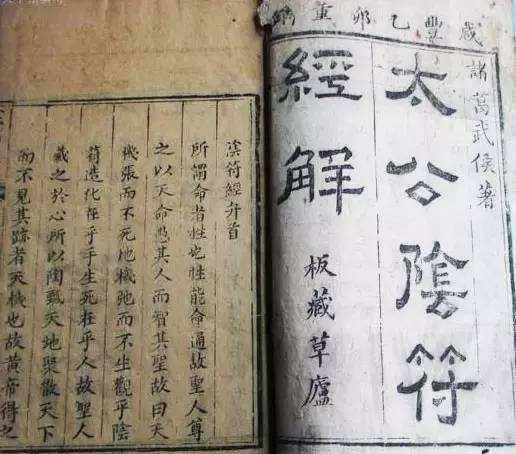 咸豐乙卯重
諸葛武侯著
太公陰符
經解
板藏草廬
陰符經弁首
所謂命者性也性能命通故聖人尊
之以天命愚其人而智其聖故曰天
機張而不死地機弛而不生觀乎陰
符造化在乎手生死在乎人故聖人
藏之於心所以陶甄天地聚散天下
而不見其跡者天機也故黃帝得之